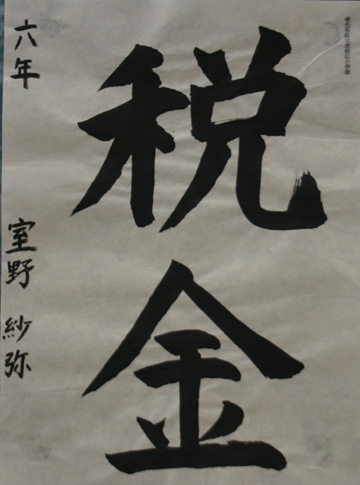 税金
六年
室野 紗弥